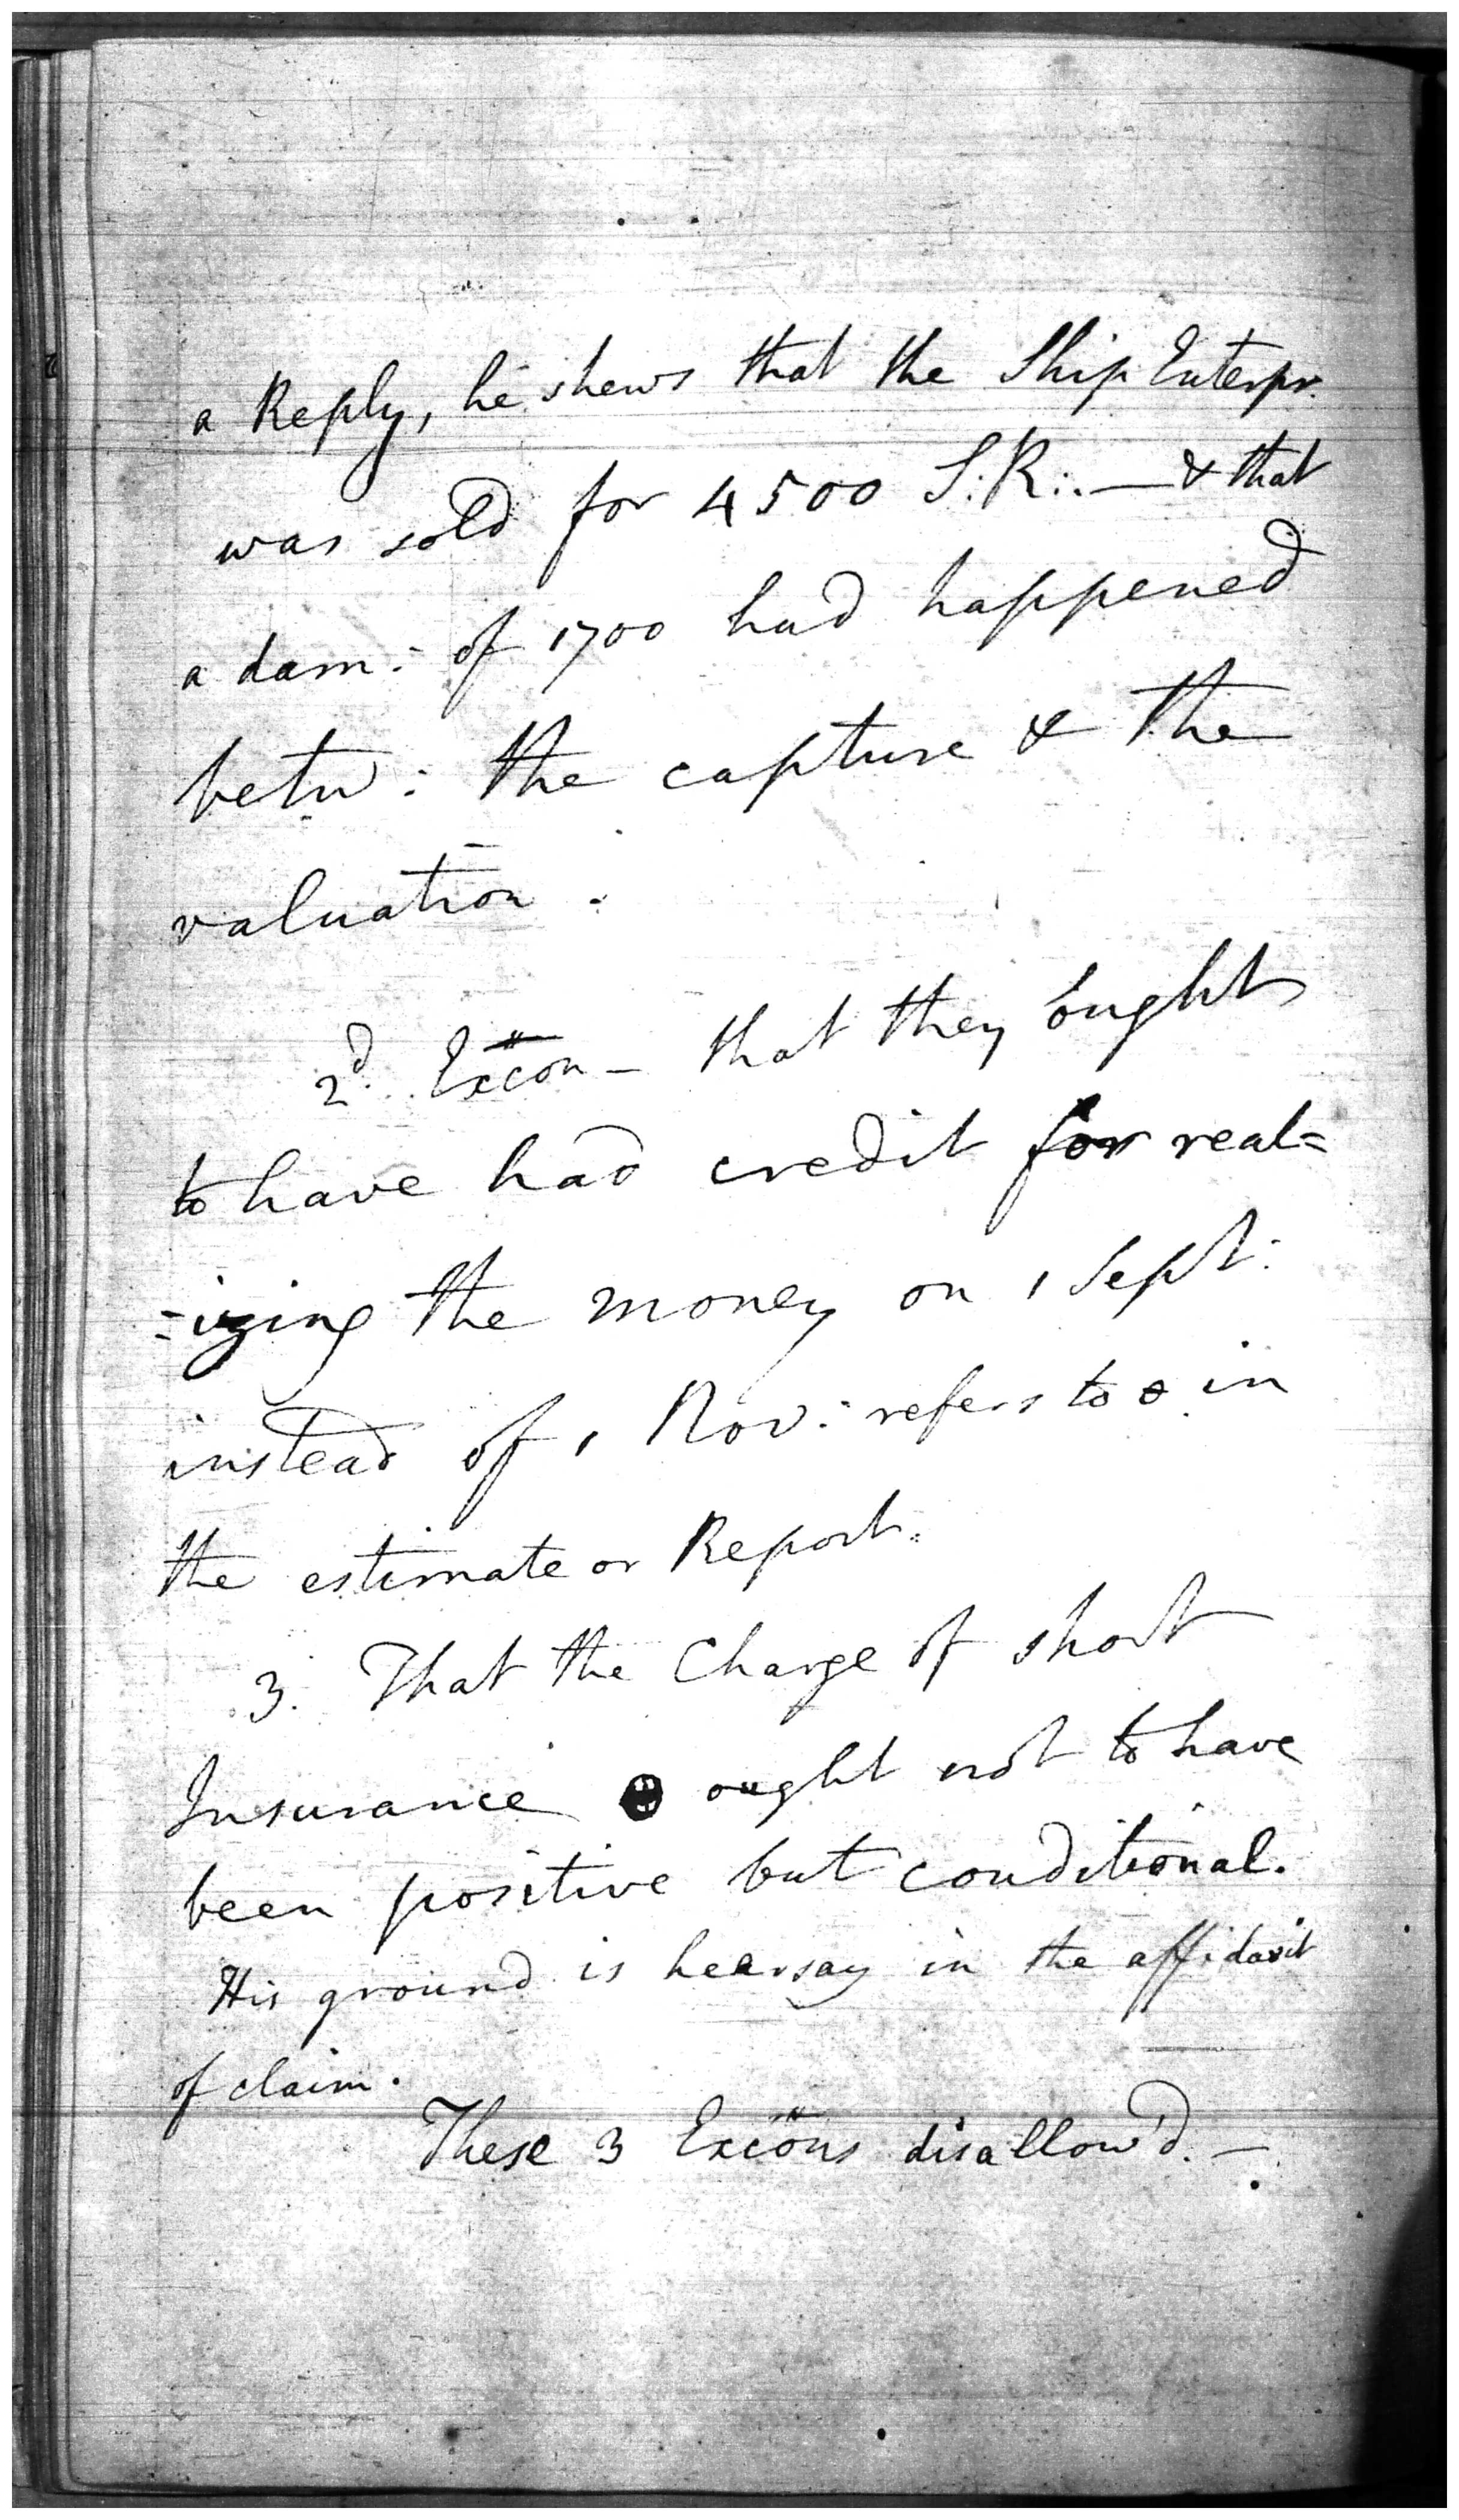 a Reply, he shews that the Ship Enterpr.
was sold for 4500 S:R:. — & that
a dam: of 1700 had happened
betw: the capture & the
valuation.
2d. Excon - that they ought
to have had credit for real=
=izing the money on 1 Sept:
instead of 1 Nov: refers to in
the estimate or Report.
3. That the Charge of short
Insurance ought not to have
been positive but conditional.
His ground is hearsay in the affidavit
of claim.
These 3 Excons disallow'd. —